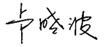 卢晓波